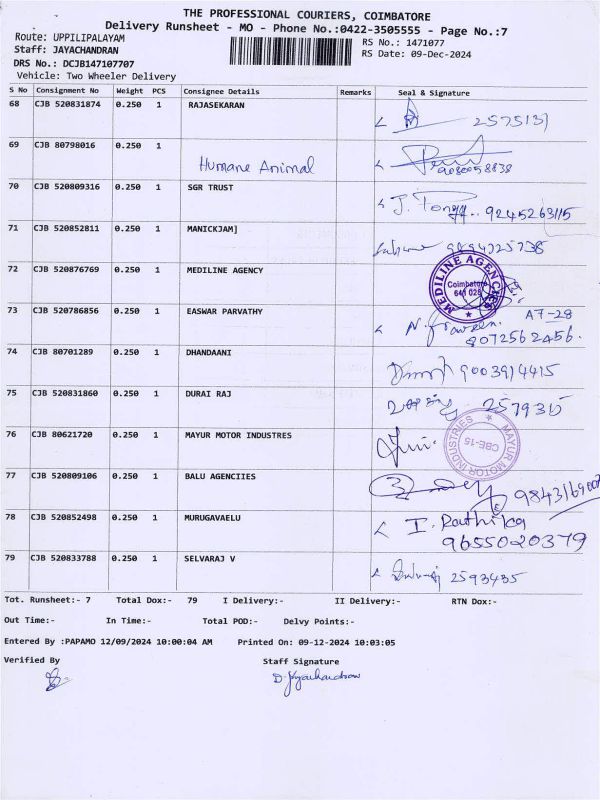 THE PROFESSIONAL COURIERS, COIMBATORE
Delivery Runsheet - MO - Phone No.:0422-3505555 - Page No.:7
Route: UPPILIPALAYAM
RS No.: 1471077
Staff: JAYACHANDRAN
RS Date: 09-Dec-2024
DRS No.: DCJB147107707
Vehicle: Two Wheeler Delivery
S No Consignment No Weight PCS Consignee Details Remarks Seal & Signature
68 CJB 520831874 0.250 1 RAJASEKARAN
69 CJB 80798016 0.250 1
Humane Animal
70 CJB 520809316 0.250 1 SGR TRUST
9245263115
71 CJB 520852811 0.250 1 MANICKJAM]
72 CJB 520876769 0.250 1 MEDILINE AGENCY
MEDILINE AGENCIES
Coimbatore
641 028
73 CJB 520786856 0.250 1 EASWAR PARVATHY
A7-28
8072562456.
74 CJB 80701289 0.250 1 DHANDAANI
9003914415
75 CJB 520831860 0.250 1 DURAI RAJ
76 CJB 80621720 0.250 1 MAYUR MOTOR INDUSTRES
MAYUR MOTOR INDUSTRIES
CBE-15
77 CJB 520809106 0.250 1 BALU AGENCIIES
78 CJB 520852498 0.250 1 MURUGAVAELU
I. Rathika
9655020379
79 CJB 520833788 0.250 1 SELVARAJ V
2593435
Tot. Runsheet:- 7 Total Dox:- 79 I Delivery:- II Delivery:- RTN Dox:-
Out Time:- In Time:- Total POD:- Delvy Points:-
Entered By :PAPAMO 12/09/2024 10:00:04 AM Printed On: 09-12-2024 10:03:05
Verified By Staff Signature
D. Jayachandran